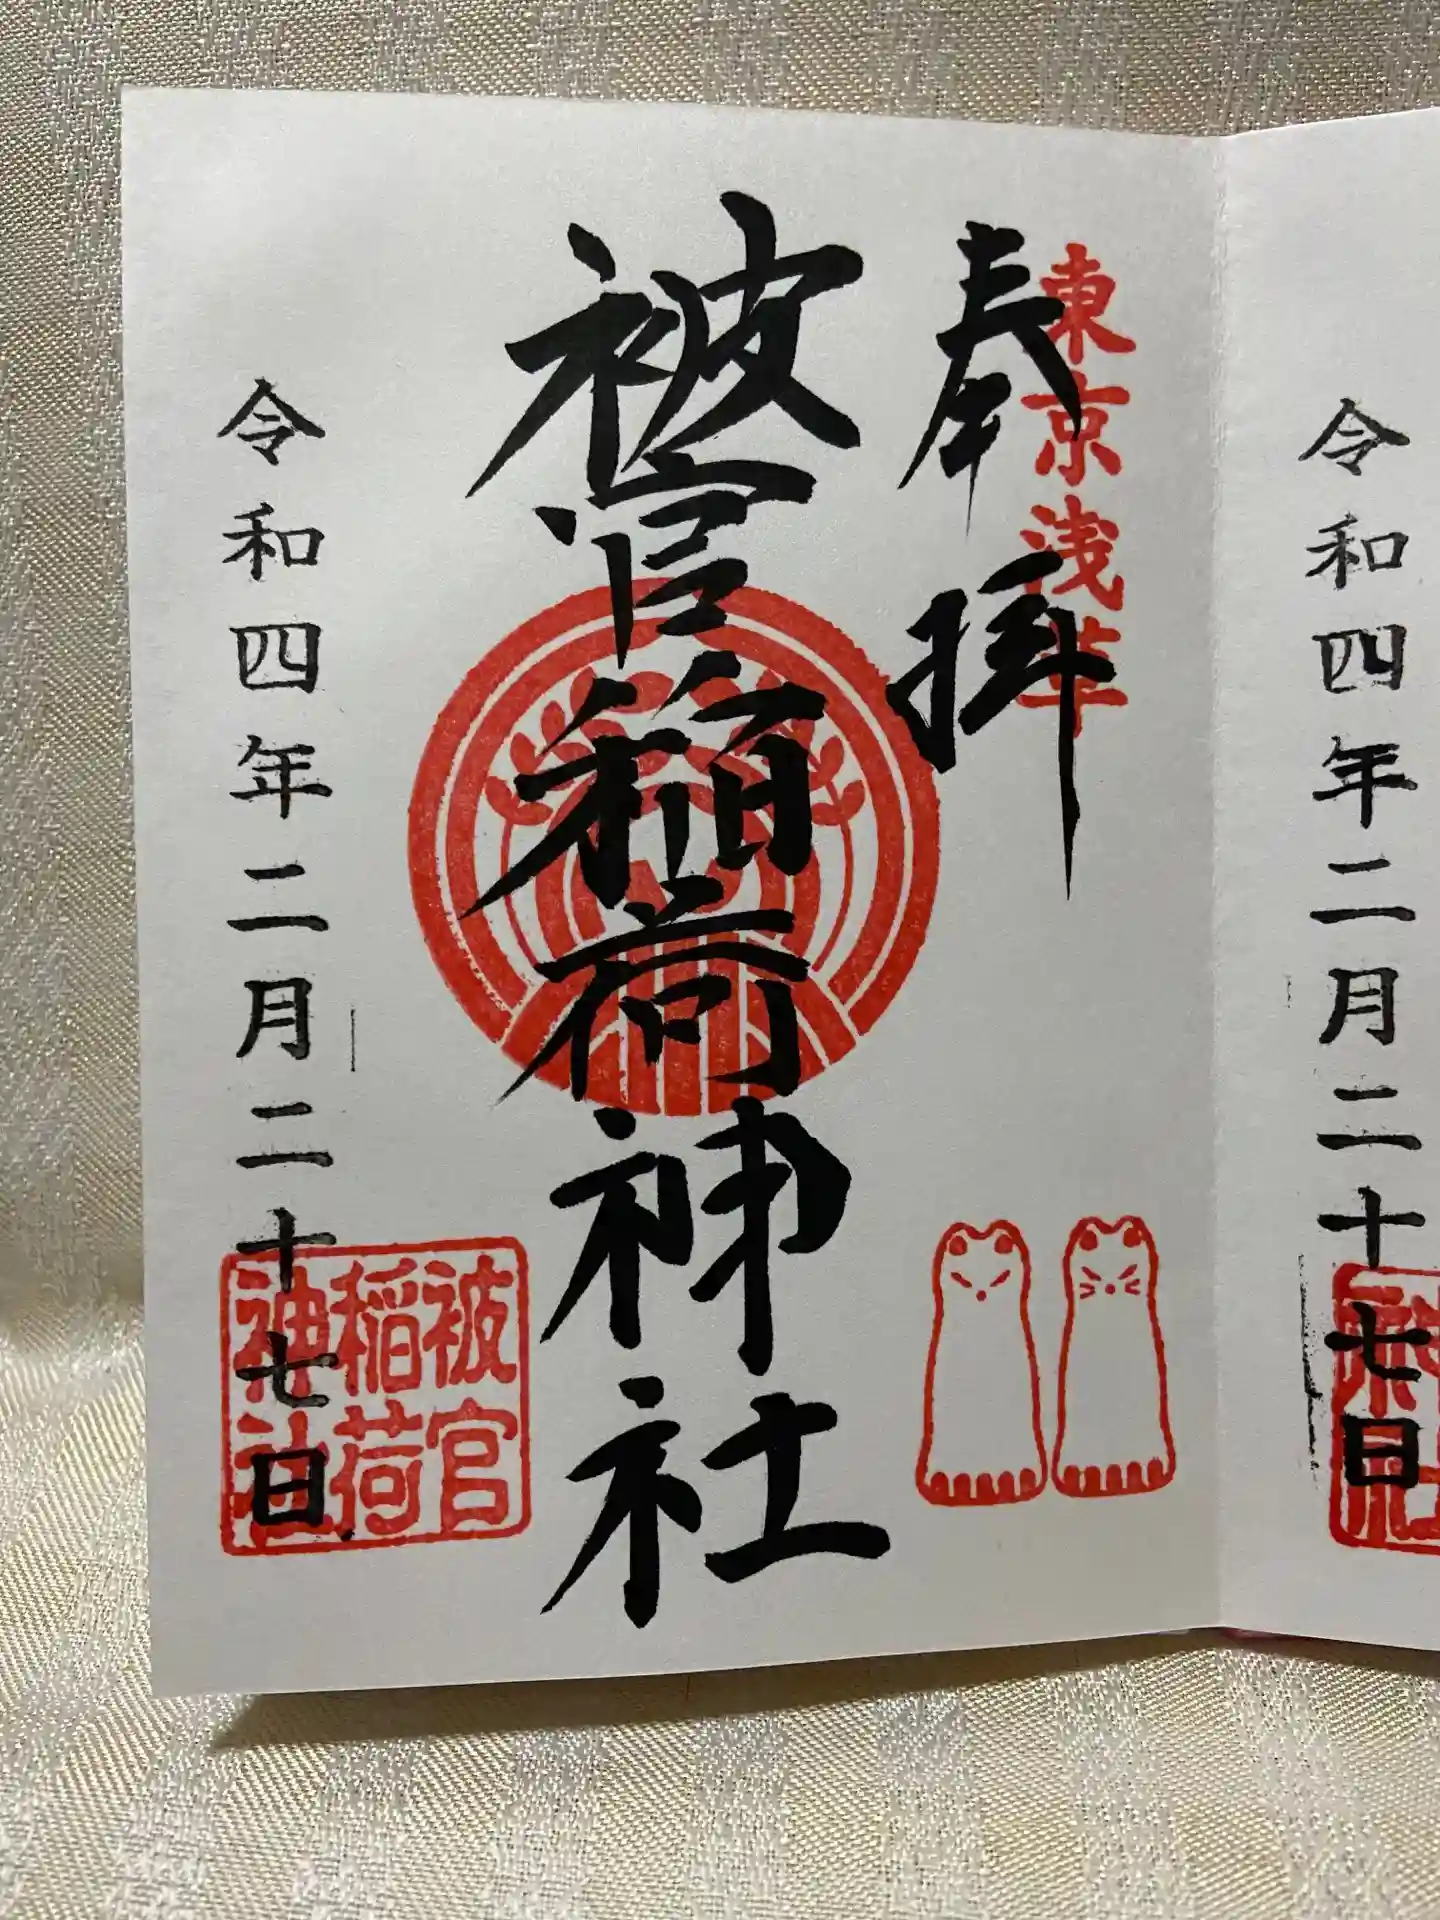 令和四年二月二十七日
東京浅草
奉拝
被官稲荷神社
令和四年二月二十七日
被官
稲荷
神社